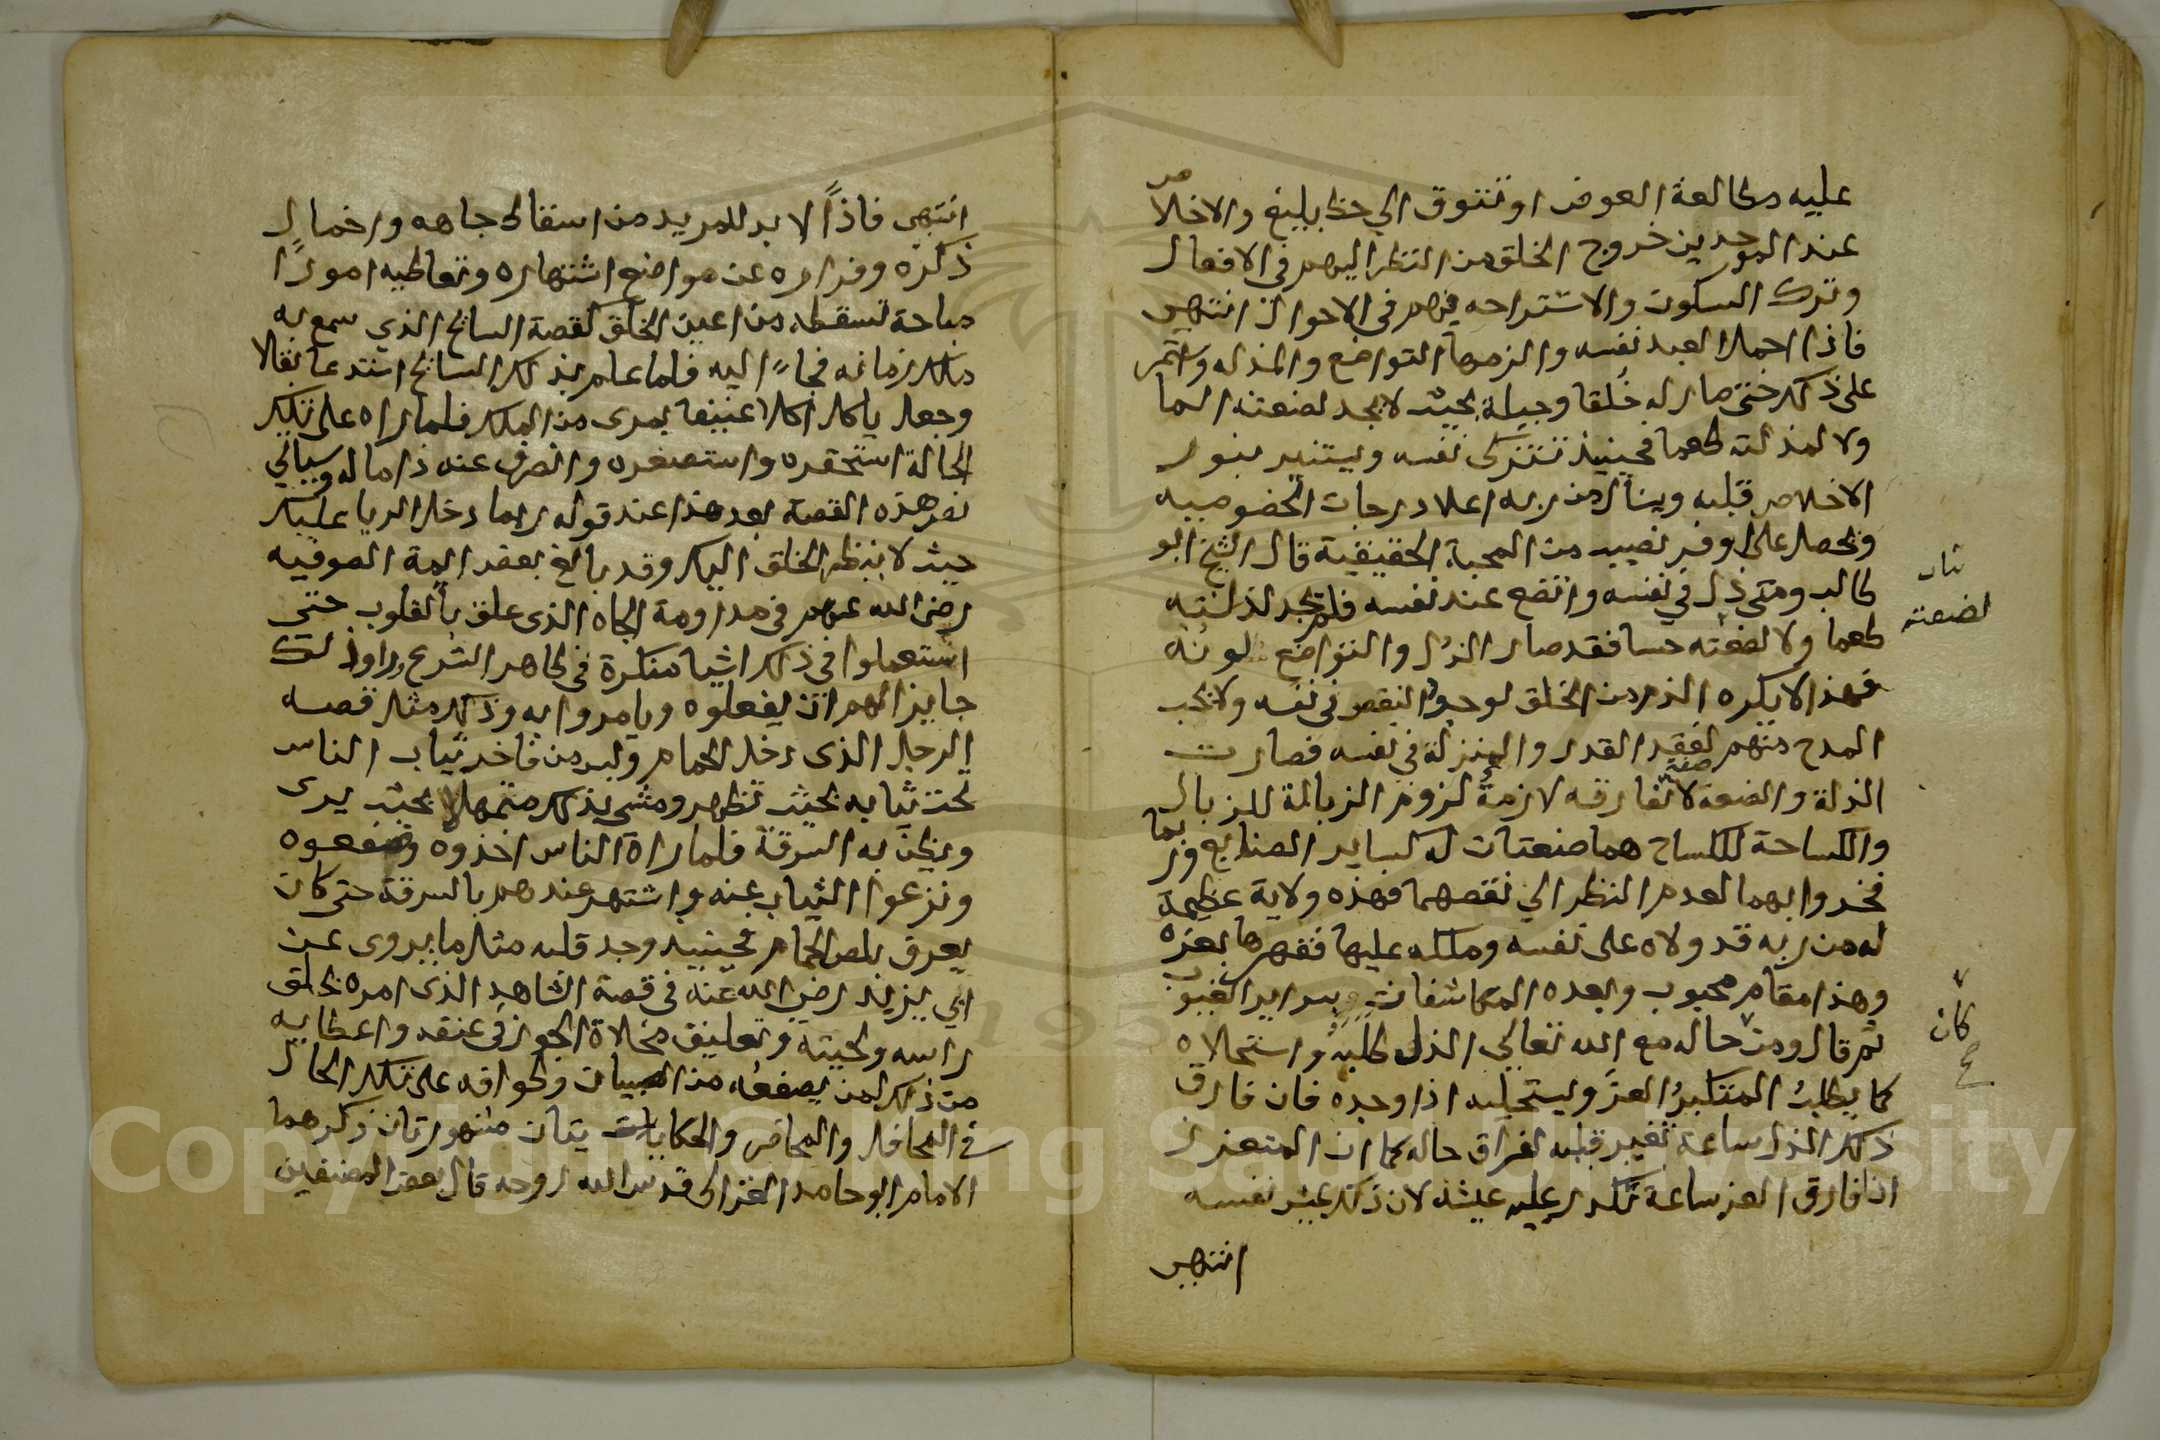 عليه مطالعة العوض او تتوق الي حظ بليغ والاخلاص
عند الموحدين خروج الخلق من النظر اليهم في الافعال
وترك السكون والاستراحه بهم في الاحوال انتهي
فاذا اخمل العبد نفسه والزمها التواضع والمذله واستمر
على ذلك حتى صار له خُلقا وجبلة بحيث لا يجد لضعته الما
ولا لمذلته طعما فحينيذ تتزكى نفسه ويستنير بنور
الاخلاص قلبه وينال من ربه اعلا درجات الخصوصيه
ويحصل على اوفر نصيب من المحبة الحقيقية قال الشيخ ابو
طالب ومتي ذل في نفسه واتضع عند نفسه فلم يجد لذلته
طعما ولا لضعته حسا فقد صار الذل والتواضع كونه
فهذا لا يكره الذم من الخلق لوجود النقص في نفسه ولا يحب
المدح منهم لفقد القدر والمنزلة في نفسه فصارت
الذلة والضعة صفة لا تفارقه لازمةُ لزوم الزبالة للزبال
والكساحة للكساح هما صنعتان له كساير الصنايع وربما
فخروا بهما لعدم النظر الي نقصهما فهذه ولاية عظيمة
له من ربه قد ولاه على نفسه وملكه عليها فقهرها بعزه
وهذا مقام محبوب وبعده المكاشفات بسراير الغيوب
ثم قال ومن حاله مع الله تعالي الذل طلبه واستحلاه
كما يطلبُ المتكبرُ العزَ ويستحليه اذا وجده فان فارق
ذلك الذل ساعة تغير قلبه لفراق حاله كما ان المتعزز
اذا فارق العز ساعة تكدر عليه عيشه لان ذلك عيش نفسه
انتهي
تاب
لضعته
كان
صح
انتهي فاذًا لا بد للمريد من اسقاط جاهه واخمال
ذكره وفراره عن مواضع اشتهاره وتعاطيه امورًا
مباحة تسقطه من اعين الخلق كقصة السايح الذي سمع به
ملك زمانه فجاءَ اليه فلما علم بذلك السايح استدعا بقلا
وجعل ياكل اكلا عنيفا بمرى من الملك فلما راه على تلك
الحالة استحقره واستصغره وانصرف عنه ذاما له وسياتي
نص هذه القصة بعد هذا عند قوله ربما دخل الريا عليك
حيث لا ينظر الخلق اليك وقد بالغ بعض ايمة الصوفيه
رضي الله عنهم في مداومة الجاه الذى علق بالقلوب حتى
استعملوا في ذلك اشيا منكرة في ظاهر الشرع وراوا ذلك
جايزا لهم ان يفعلوه ويامروا به وذلك مثل قصه
الرجل الذى دخل الحمام ولبس من فاخر ثياب الناس
تحت ثيابه بحيث تظهر ومشى بذلك متمهلا بحيث يرى
ويظن به السرقة فلما راه الناس اخذوه وصفعوه
ونزعوا الثياب عنه واشتهر عندهم بالسرقة حتى كان
يعرف بلص الحمام فحينيذ وجد قلبه مثل ما يروى عن
ابي يزيد رضي الله عنه في قصة الشاهد الذى امره بحلق
راسه ولحيته وتعليق مخلاة الجوز في عنقه واعطايه
من ذلك لمن يصفعه من الصبيان وطوافه على تلك الحال
في المحافل والمحاضر والحكايات يتان مشهورتان ذكرهما
الامام ابو حامد الغزالى قدس الله روحه قال بعض المصنفين